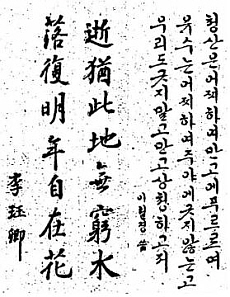 청산은어제하여만고에푸르르며
유수는어제하여주야에긋지않는고
우리도긋지말고만고상청하고져
이각경 씀
逝猶此地無窮水
落復明年自在花
李珏卿